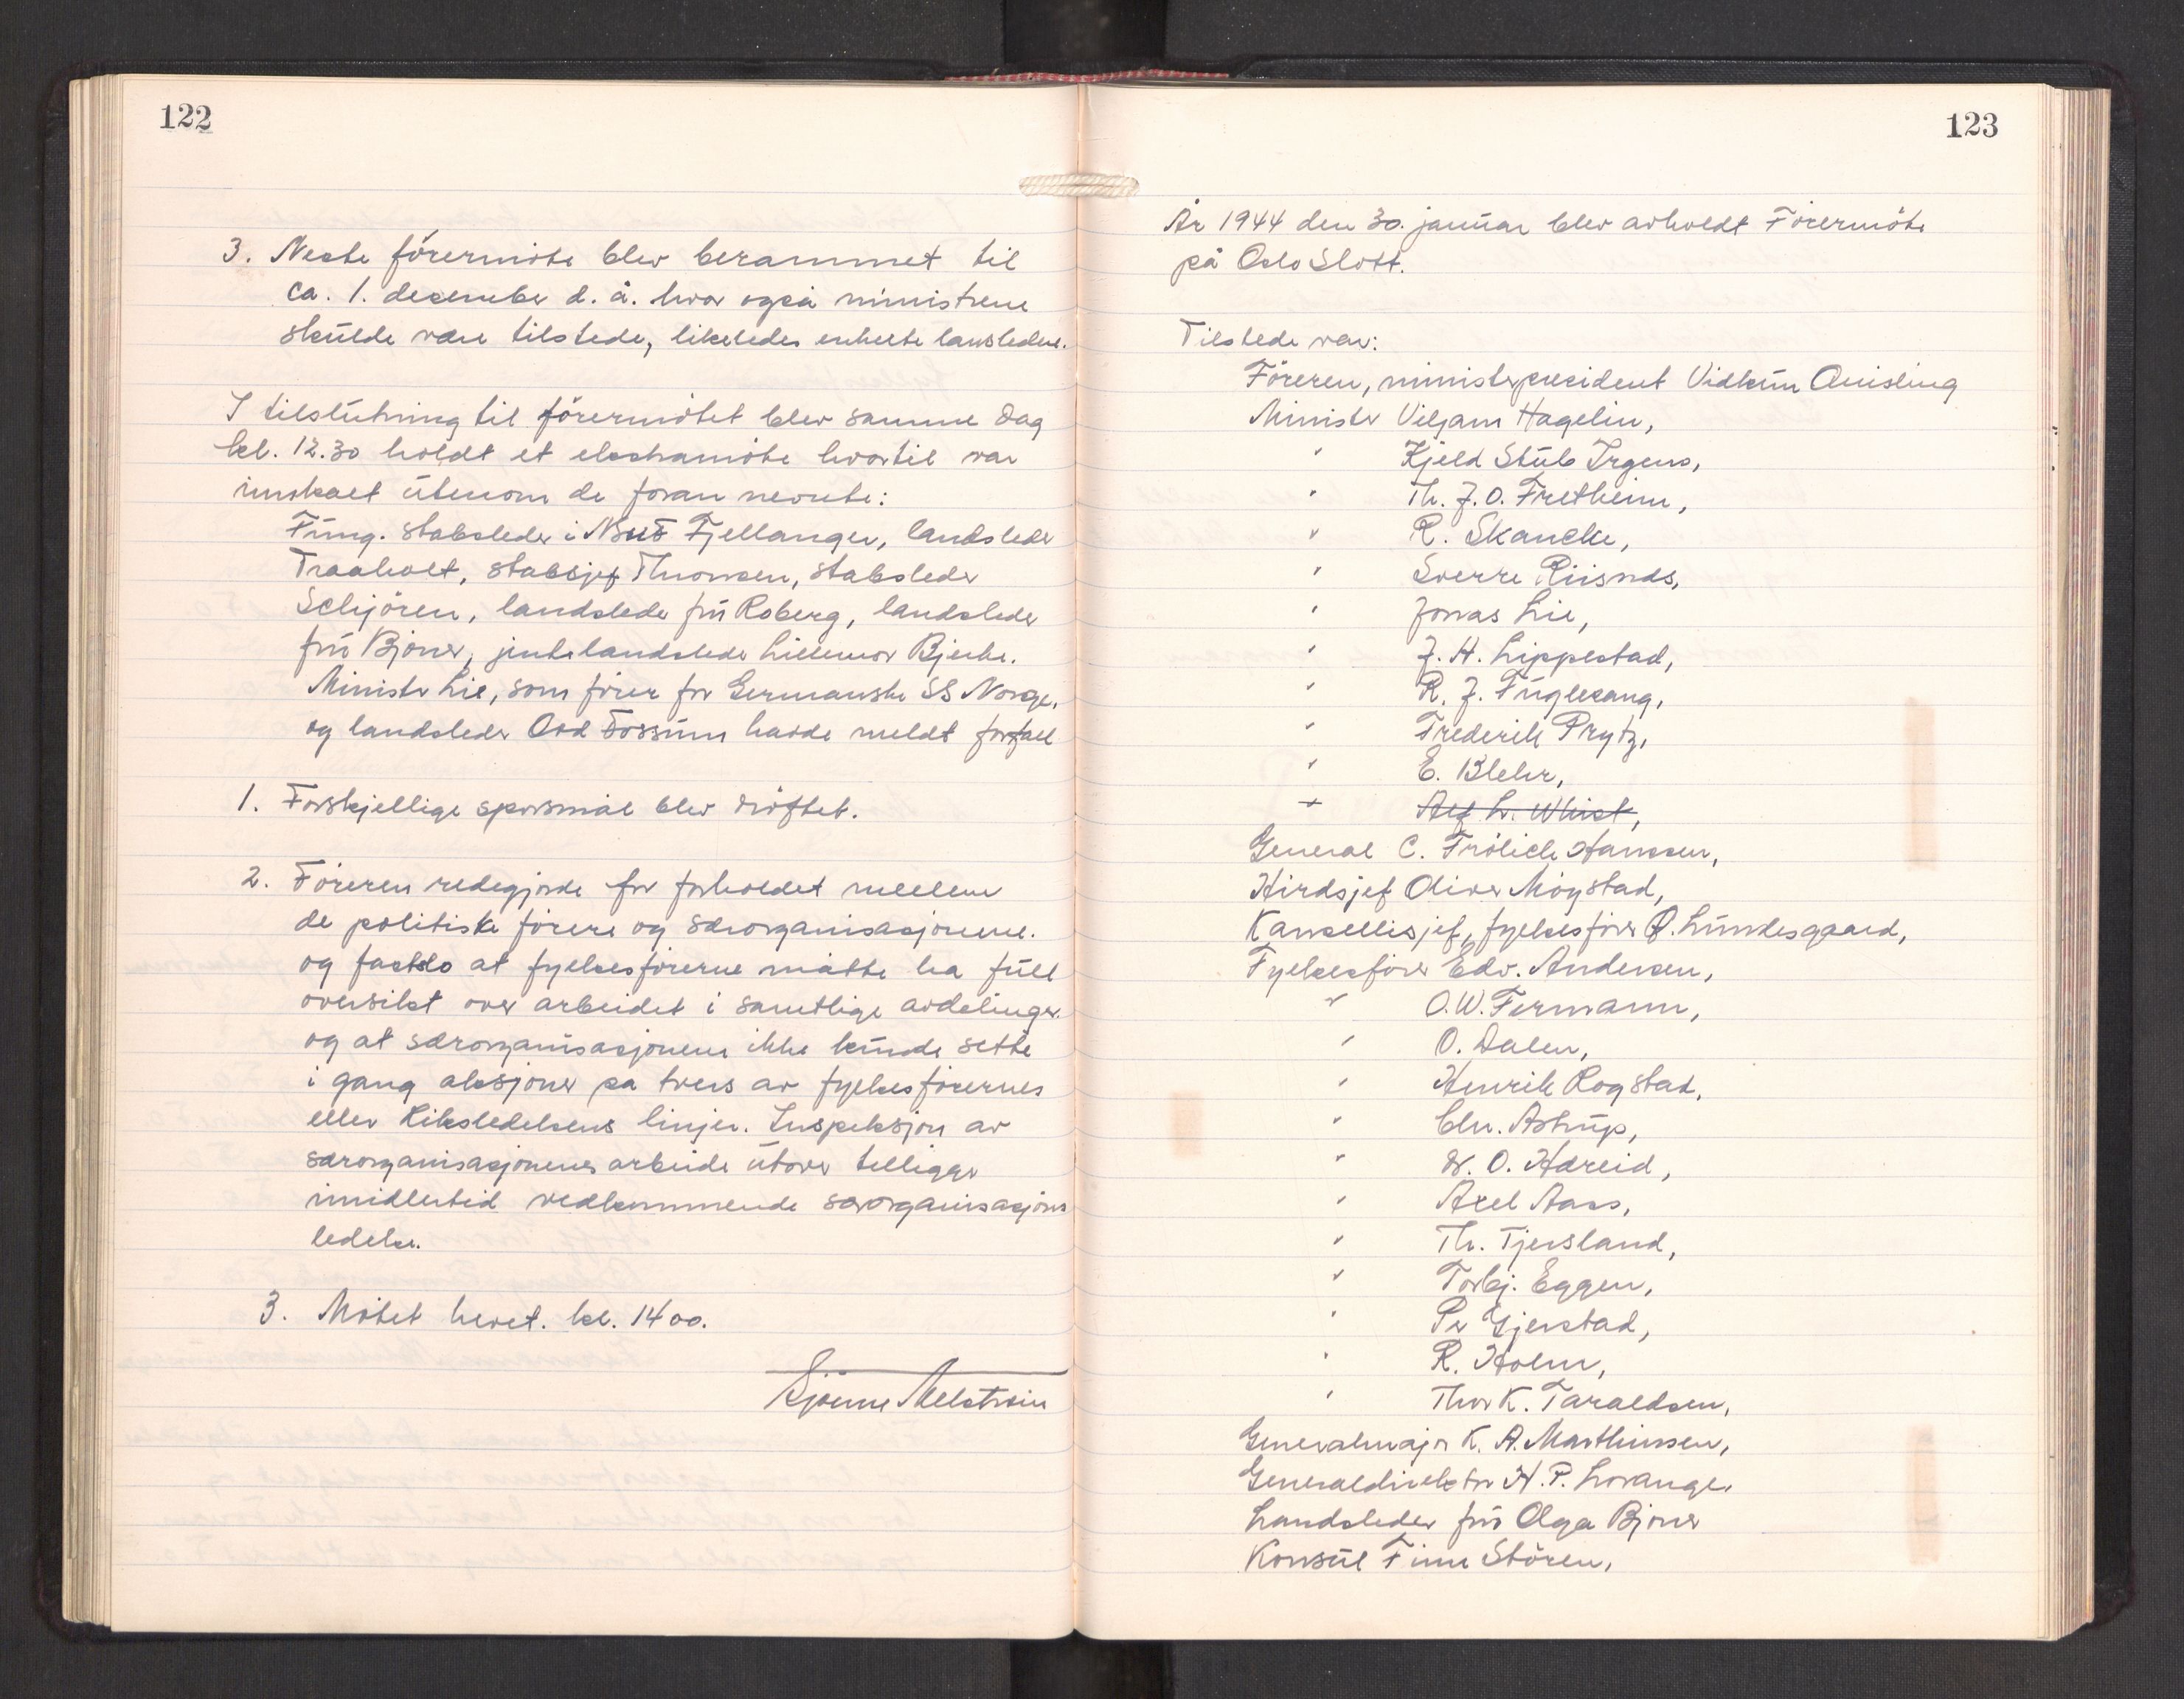 122
3. Neste förermöte blev berammet til
ca. 1. desember d. å. hvor også ministrene
skulde være tilstede, likeledes enkelte landsledere.
I tilslutning til förermötet blev samme dag
kl. 12.30 holdt et ekstramöte hvortil var
innkalt utenom de foran nevnte:
Fung. stabsleder i NSUF Fjellanger, landsleder
Traaholt, stabsjef Thomsen, stabsleder
Schjören, landsleder fru Roberg, landsleder
fru Bjoner, jentelandsleder Lillemor Bjerke.
Minister Lie, som förer for Germanske SS Norge,
og landsleder Odd Fossum hadde meldt forfall
1. Forskjellige spörsmål blev dröftet.
2. Föreren redegjorde for forholdet mellem
de politiske förere og særorganisasjonene.
og fastslo at fylkesförerne måtte ha full
oversikt over arbeidet i samtlige avdelinger.
og at særorganisasjonene ikke kunde sette
i gang aksjoner på tvers av fylkesförernes
eller Riksledelsens linjer. Inspeksjon av
særorganisasjonenes arbeide utover tilligger
imidlertid vedkommende særorganisasjons
ledelse.
3. Mötet hevet. kl. 14 00.
123
År 1944 den 30. januar blev avholdt Förermöte
på Oslo Slott.
Tilstede var:
Föreren, ministerpresident Vidkun Quisling
Minister Viljam Hagelin,
" Kjeld Stub Irgens,
" Th. J. O. Fretheim,
" R. Skancke,
" Sverre Riisnæs,
" Jonas Lie,
" J. H. Lippestad,
" R. J. Fuglesang,
" Frederik Prytz,
" E. Blehr,
" Alf L. Whist,
General C. Frölich Hanssen,
Hirdsjef Oliver Möystad,
Kansellisjef, fylkesförer R. Lundesgaard,
Fylkesförer Edv. Andersen,
" O. W. Fermann,
" O. Dalen,
" Henrik Rogstad,
" Chr. Astrup,
" N. O. Hareid,
" Axel Aass,
" Th. Tjensland,
" Torbj. Eggen,
" Per Gjerstad,
" R. Holm,
" Thor K. Taraldsen,
Generalmajor K. A. Marthinsen,
Generaldirektör H. P. Lorange,
Landsleder fru Olga Bjoner
Konsul Finn Stören,